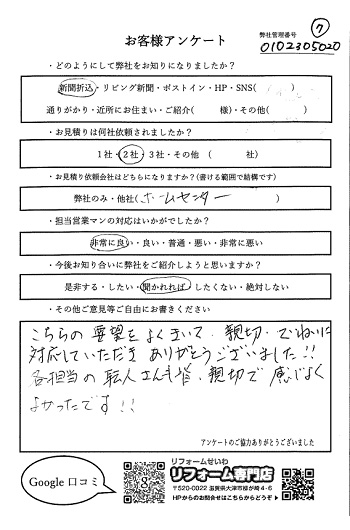 ⑦
弊社管理番号
0102305020
お客様アンケート
・どのようにして弊社をお知りになりましたか？
新聞折込・リビング新聞・ポストイン・HP・SNS( )
通りがかり・近所にお住まい・ご紹介( 様)・その他( )
・お見積りは何社依頼されましたか？
1社・2社・3社・その他 ( 社)
・お見積り依頼会社はどちらになりますか？(書ける範囲で結構です)
弊社のみ・他社(ホームセンター )
・担当営業マンの対応はいかがでしたか？
非常に良い・良い・普通・悪い・非常に悪い
・今後お知り合いに弊社をご紹介しようと思いますか？
是非する・したい・聞かれれば・したくない・絶対しない
・その他ご意見等ご自由にお書きください
こちらの要望をよくきいて、親切・ていねいに
対応していただき ありがとうございました!!
各担当の職人さんも皆、親切で感じよく
よかったです!!
アンケートのご協力ありがとうございました
Google 口コミ
リフォームせいわ
リフォーム専門店
〒520-0022 滋賀県大津市柳が崎4-6
HPからのお問合せはこちらからどうぞ